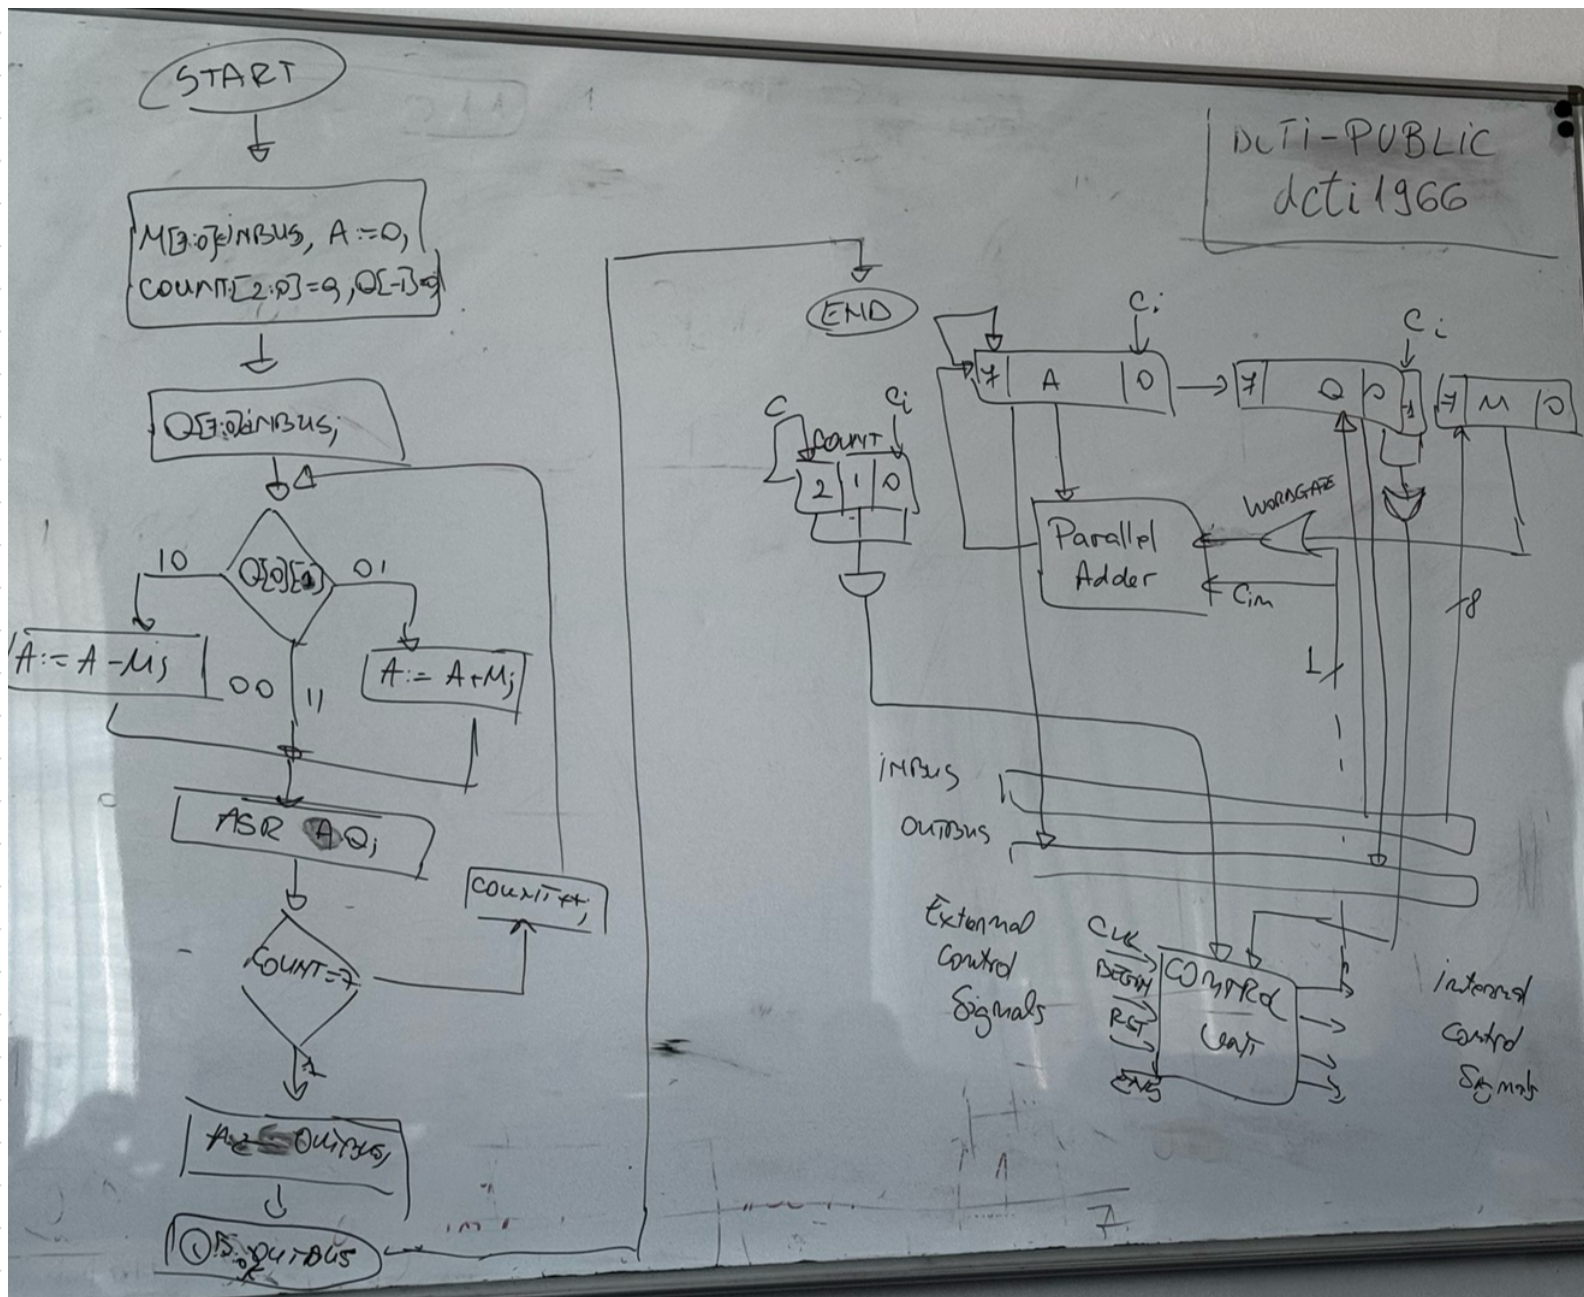 START
M[7:0]:=INBUS, A:=0,
COUNT[2:0]=0, Q[-1]=0
Q[7:0]:=INBUS;
Q[0][-1]
10
01
A:=A-M;
00
11
A:= A+M;
ASR A.Q;
COUNT++;
COUNT=7
OUTBUS,
OUTBUS
END
DCTI-PUBLIC
dcti1966
C
Ci
COUNT
2 1 0
Ci
7 A 0
Ci
7 Q 0 -1
7 M 0
Parallel
Adder
WORDGATE
Cin
8
1
INBUS
OUTBUS
External
Control
Signals
CLK
BEGIN
RST
CONTROL
Unit
Internal
Control
Signals
7